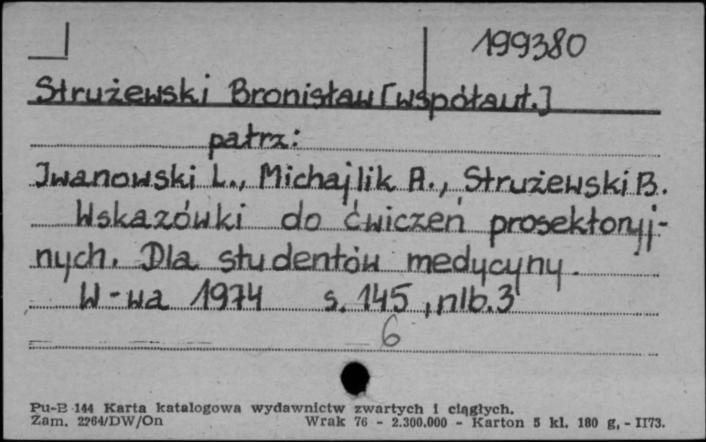 199380
Strużewski Bronisław [współaut.]
patrz:
Iwanowski L., Michajlik A., Strużewski B.
Wskazówki do ćwiczeń prosektoryj-
nych. Dla studentów medycyny.
W-wa 1974 s. 145, nlb. 3
6
Pu-B 144 Karta katalogowa wydawnictw zwartych i ciągłych.
Zam. 2264/DW/On Wrak 76 - 2.300.000 - Karton 5 kl. 180 g, - II73.